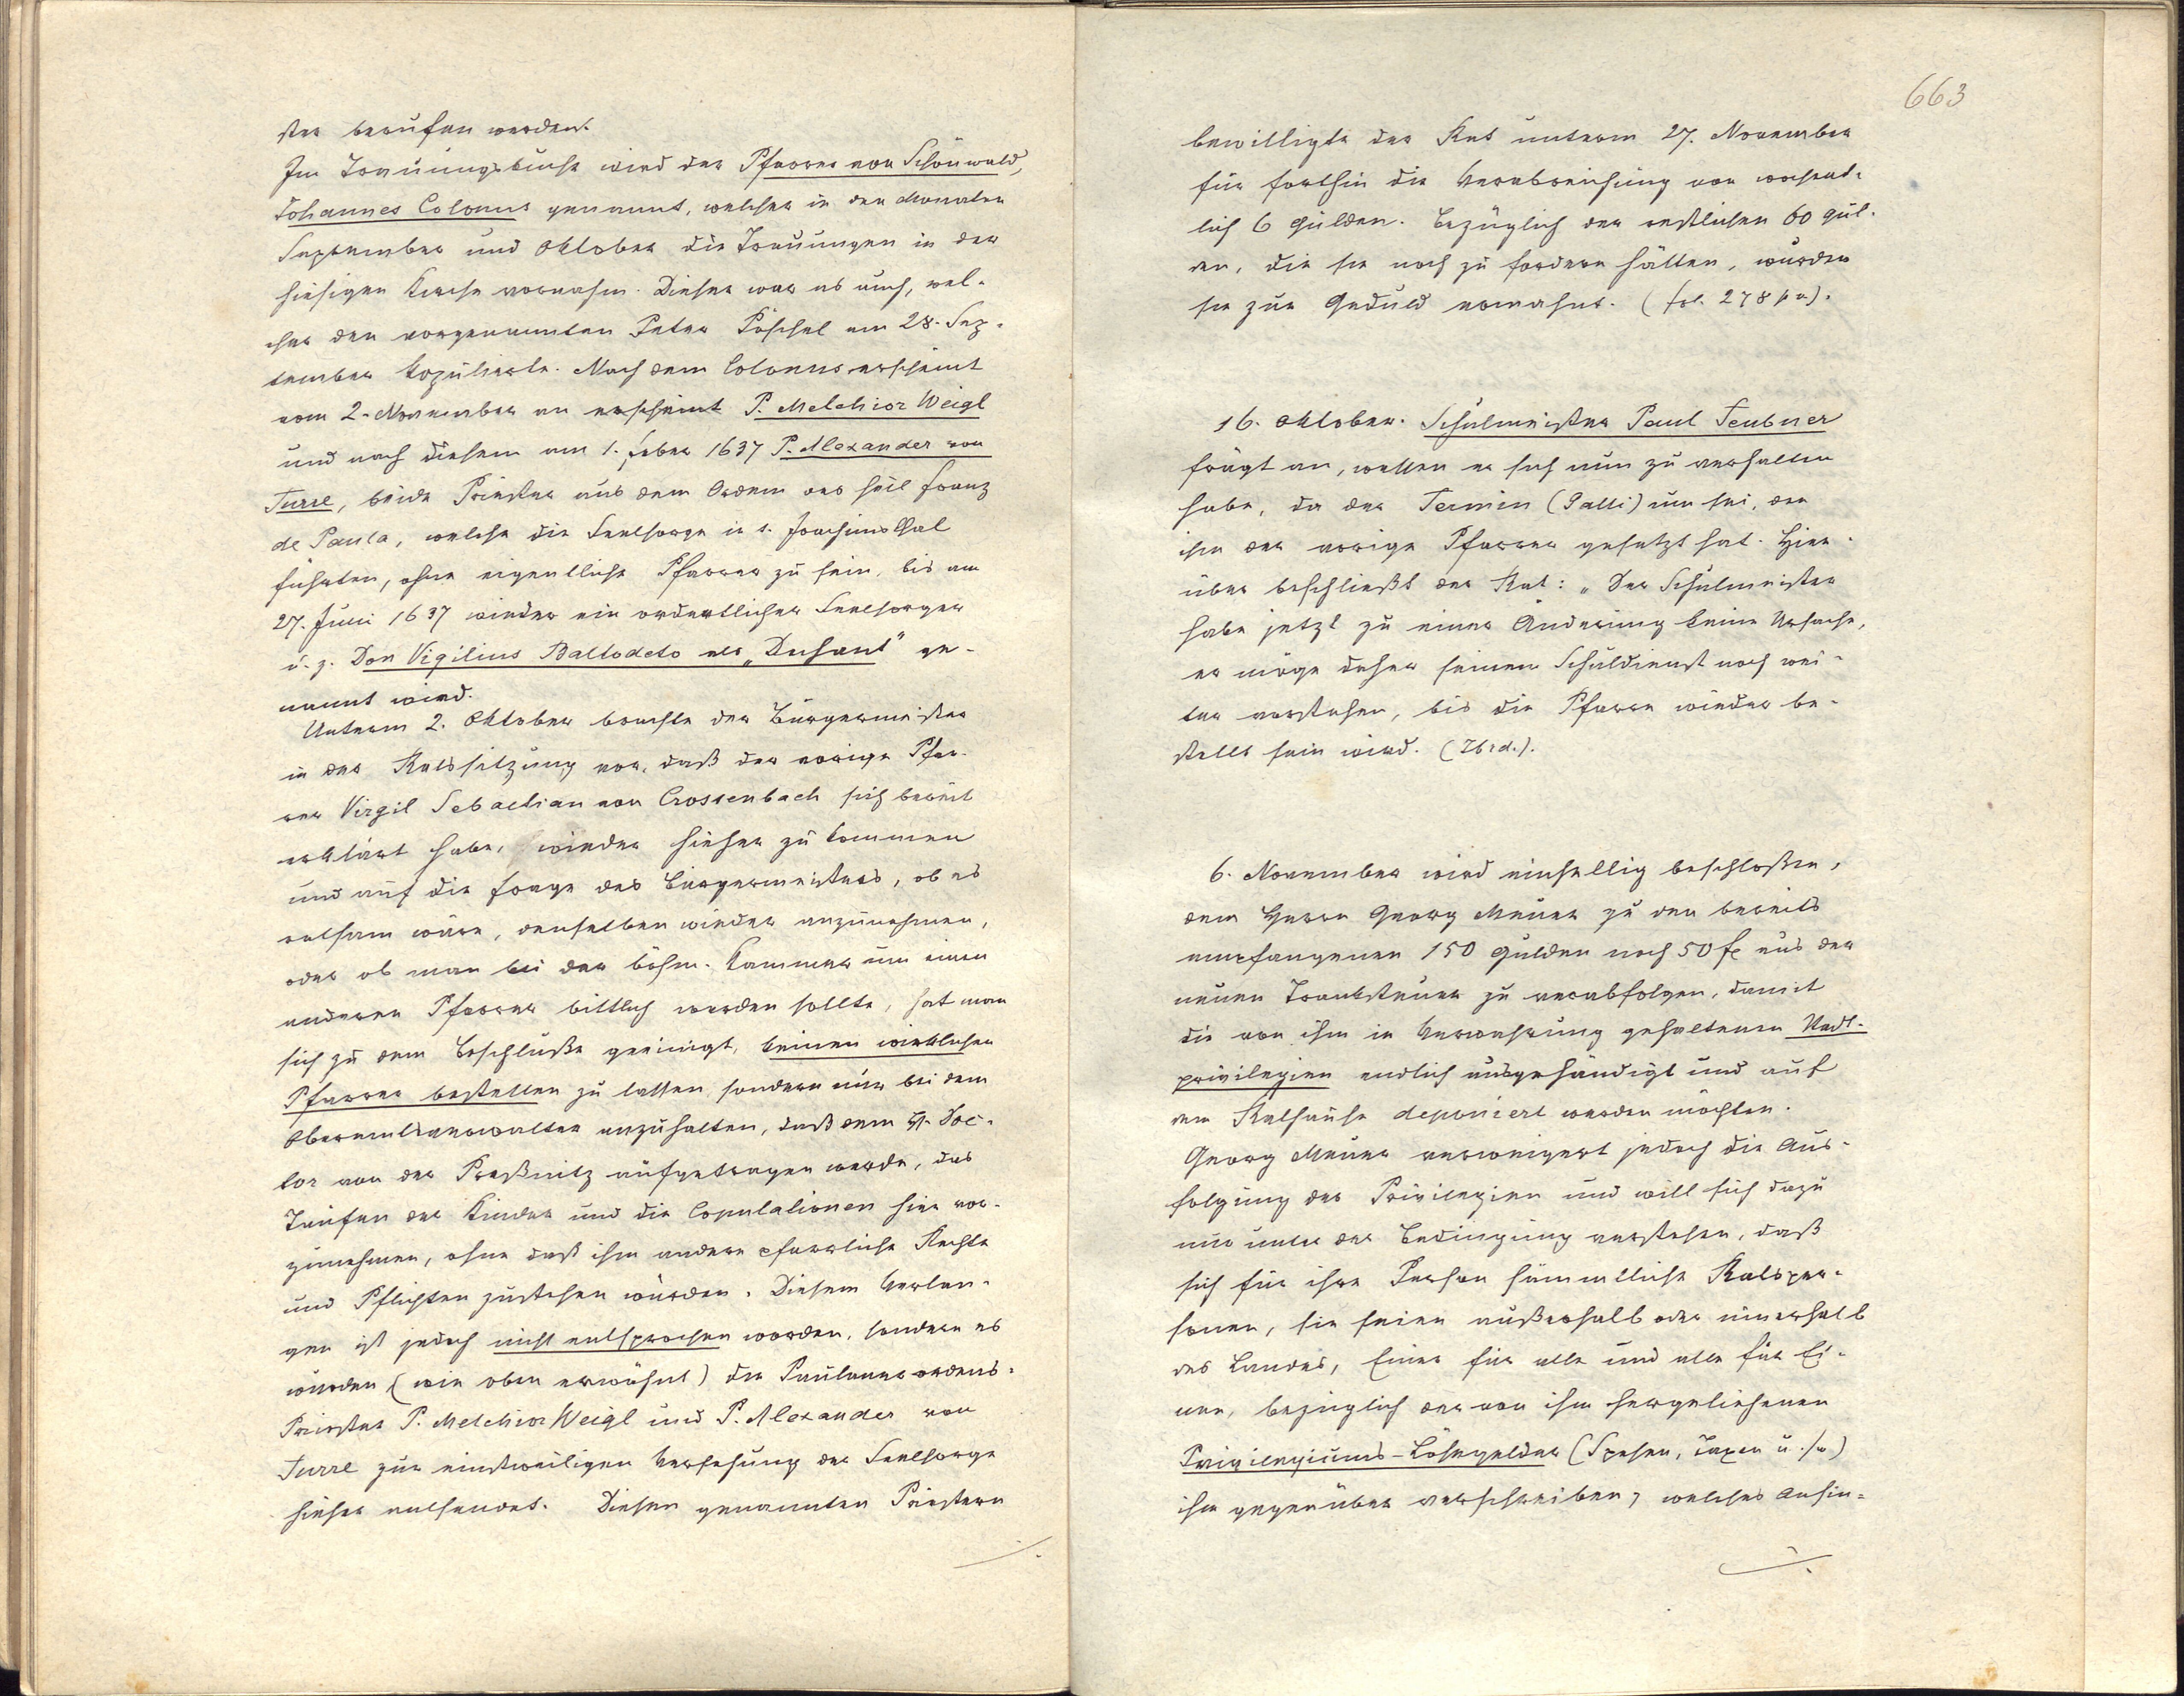 ster berufen werden.
Im Trauungsbuche wird der Pfarrer von Schönwald,
Johannes Colonus genannt, welcher in den Monaten
September und Oktober die Trauungen in der
hiesigen Kirche vornahm. Dieser war es auch, wel-
cher den vorgenannten Peter Pöschel am 28. Sep-
tember kopulierte. Nach dem Colonus erscheint
vom 2. November an erscheint P. Melchior Weigl
und nach diesem am 1. Feber 1637 P. Alexander von
Turre, beide Priester aus dem Orden des heil Franz
de Paula, welche die Seelsorge in s. Joachimsthal
führten, ohne eigentliche Pfarrer zu sein, bis am
27. Juni 1637 wieder ein ordentlicher Seelsorger
u. z. Don Vigilius Baltodeto als „Dechant" ge-
nannt wird.
Unterm 2. Oktober brachte der Bürgermeister
in der Ratssitzung vor, daß der vorige Pfar-
rer Virgil Sebastian von Crossenbach sich bereit
erklärt habe, wieder hieher zu kommen
und auf die Frage des Bürgermeisters, ob es
ratsam wäre, denselben wieder anzunehmen,
oder ob man bei der böhm. Kammer um einen
anderen Pfarrer bittlich werden sollte, hat man
sich zu dem Beschluße geeinigt, keinen wirklichen
Pfarrer bestellen zu lassen, sondern nur bei dem
Oberamtsverwalter anzuhalten, daß dem H. Doc-
tor von der Preßnitz aufgetragen werde, das
Taufen der Kinder und die Copulationen hier vor-
zunehmen, ohne daß ihm andere pfarrliche Rechte
und Pflichten zustehen würden. Diesem Verlan-
gen ist jedoch nicht entsprochen worden, sondern es
wurden (wie oben erwähnt) die Paulanerordens-
Priester P. Melchior Weigl und P. Alexander von
Turre zur einstweiligen Versehung der Seelsorge
hieher entsendet. Diesen genannten Priestern
663
bewilligte der Rat unterm 27. November
für forthin die Verabreichung von wochent-
lich 6 Gulden. Bezüglich der restlichen 60 Gul-
den, die sie noch zu fordern hätten, wurden
sie zur Geduld ermahnt. (fol. 278
16. Oktober. Schulmeister Paul Teubner
frägt an, wessen er sich nun zu verhalten
habe, da der Termin (Galli) um sei, den
ihm der vorige Pfarrer gesetzt hat. Hier-
über beschließt der Rat: „Der Schulmeister
habe jetzt zu einer Änderung keine Ursache,
er möge daher seinem Schuldienst noch wei-
ter vorstehen, bis die Pfarre wieder be-
stellt sein wird. (Ibid.).
6. November wird einhellig beschloßen,
dem Herrn Georg Meuer zu den bereits
empfangenen 150 Gulden noch 50 f aus der
neuen Tranksteuer zu verabfolgen, damit
die von ihm in Verwahrung gehaltenen Stadt-
privilegien endlich ausgehändigt und auf
dem Rathause deponiert werden möchten.
Georg Meuer verweigert jedoch die Aus-
folgung der Privilegien und will sich dazu
nur unter der Bedingung verstehen, daß
sich für ihre Person sämmtliche Ratsper-
sonen, sie seien außerhalb oder innerhalb
des Landes, Einer für alle und alle für Ei-
nen, bezüglich der von ihm hergeliehenen
Privilegiums-Lösegelder (Spesen, Taxen u. s. w)
ihm gegenüber verschreiben, welches Ansin-